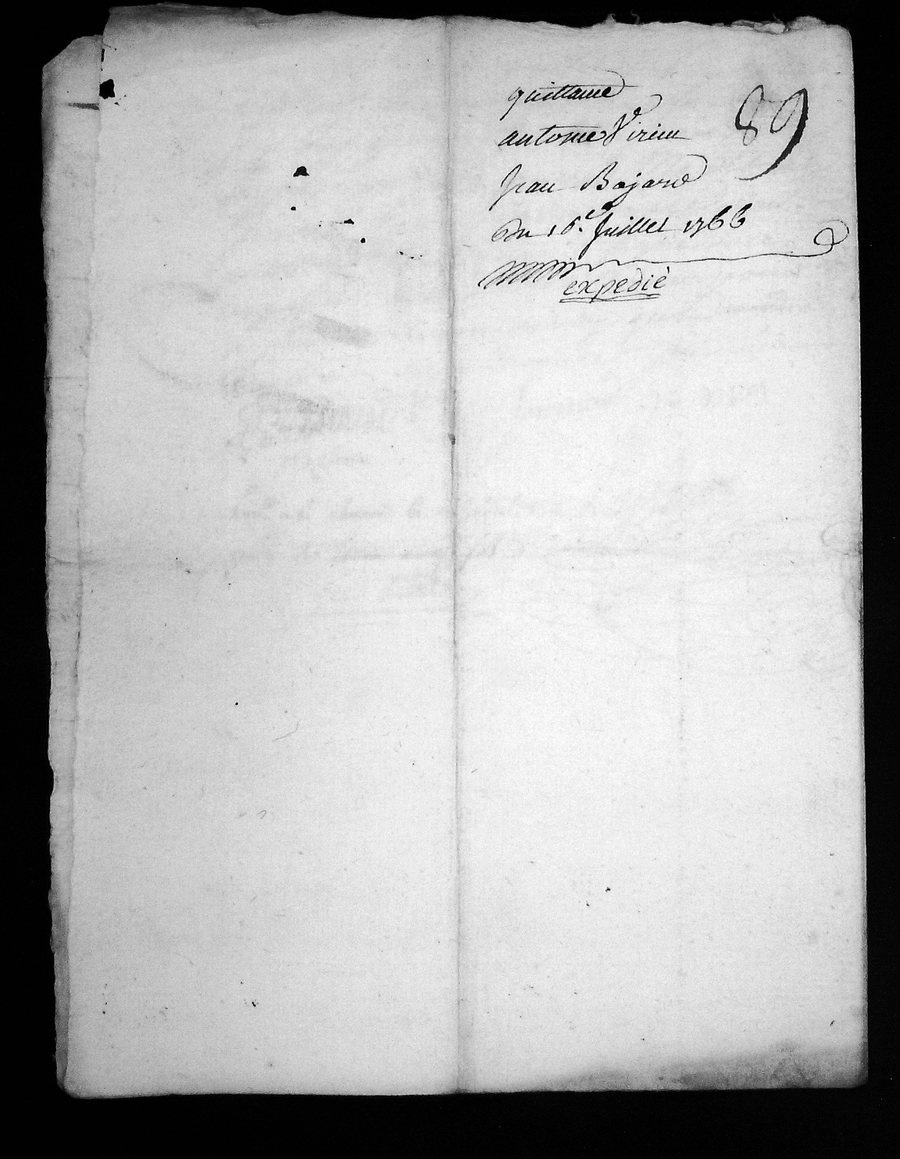 quittance
antoine Virieu
89
Jean Bajard
Du 16e Juillet 1766
expedié